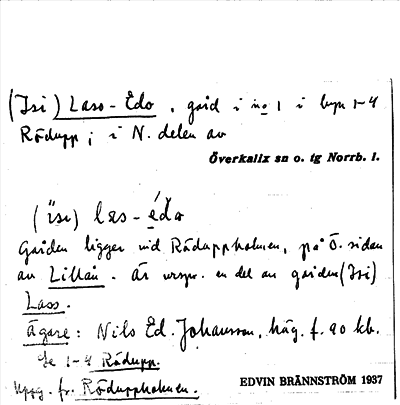 (Isi) Lass-Edo, gård i no 1 i byn 1-4
Rödupp; i N. delen av
Överkalix sn o. tg Norrb. l.
(ìsi) læs-édo
Gården ligger vid Röduppholmen, på Ö. sidan
av Lillån. Är urspr. en del av gården (Isi)
Lass.
Ägare: Nils Ed. Johansson, häg. f. 90 kb.
Se 1-4 Rödupp.
Uppg. fr. Röduppholmen.
EDVIN BRÄNNSTRÖM 1937